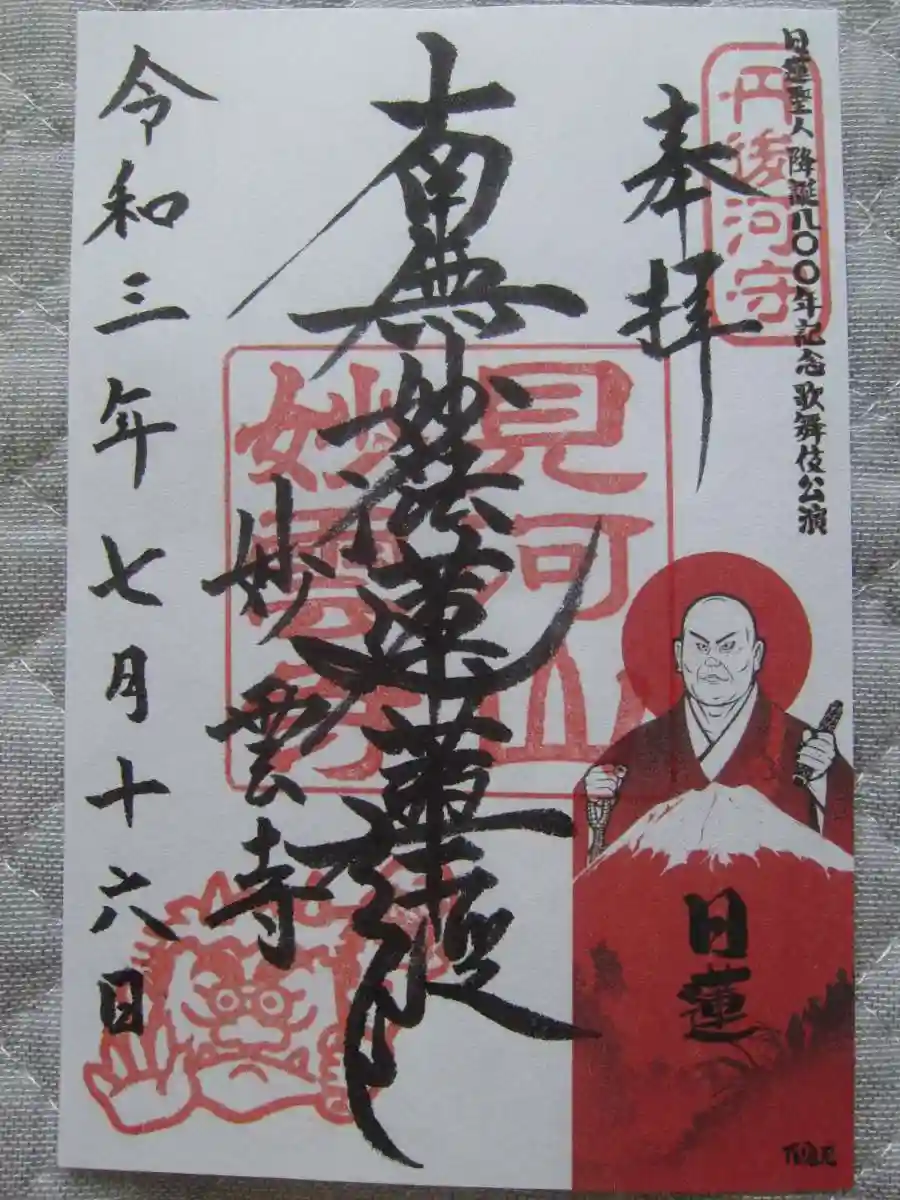 日蓮聖人降誕八〇〇年記念歌舞伎公演
丹後河守
奉拝
見河山
妙雲寺
南無妙法蓮華経
妙雲寺
令和三年七月十六日
日蓮